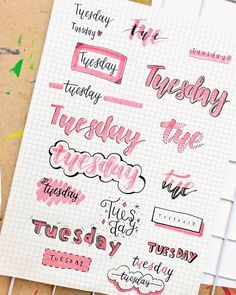 Tuesday
Tuesday
tue
tuesday
Tuesday
tuesday
Tuesday
Tuesday
tue
tuesday
tuesday
tue
Tues
day
Tuesday
tuesday
Tuesday
TUESDAY
tuesday